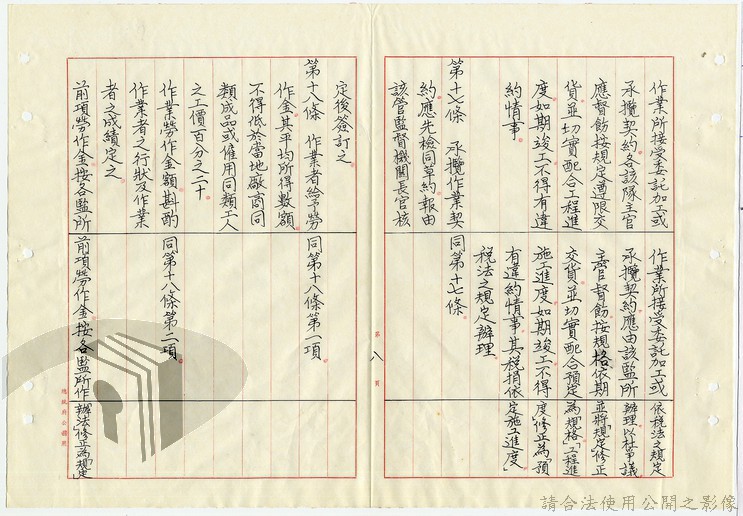 作業所接受委託加工或
承攬契約各該隊主官
應督飭按規定遵限交
貨並切實配合工程進
度如期竣工不得有違
約情事
第十七條 承攬作業契
約應先檢同草約報由
該管監督機關長官核
作業所接受委託加工或
承攬契約應由該監所
主官督飭按規格依期
交貨並切實配合預定
施工進度如期竣工不得
有違約情事其稅捐依
稅法之規定辦理
同第十七條
依稅法之規定
辦理以杜爭議
並將「規定」修正
為「規格」「工程進
度」修正為「預
定施工進度」
第 八 頁
定後簽訂之
第十八條 作業者給予勞
作金其平均所得數額
不得低於當地廠商同
類成品或僱用同類工人
之工價百分之二十
作業勞作金額斟酌
作業者之行狀及作業
者之成績定之
前項勞作金按各監所
同第十八條第一項
同第十八條第二項
前項勞作金按各監所作
辦法修正為「規定」
總統府公報室
請合法使用公開之影像